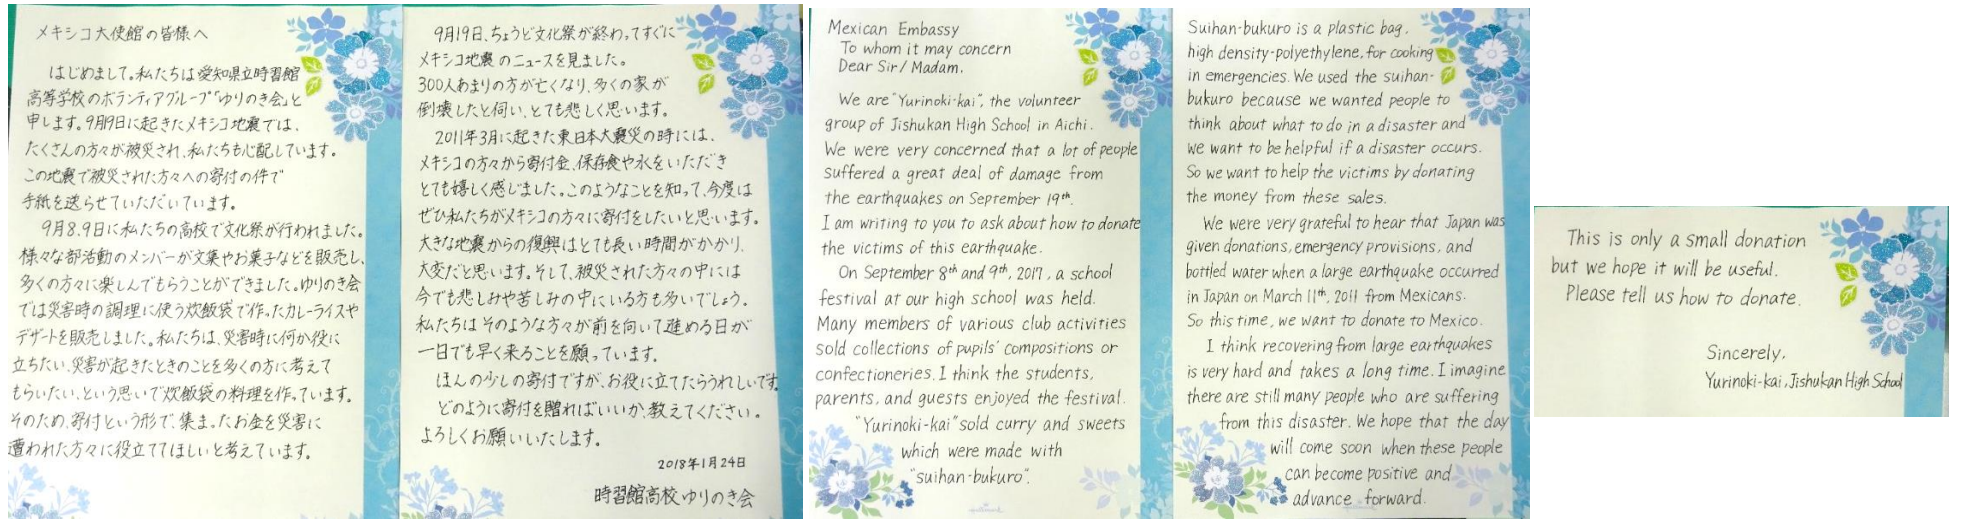 メキシコ大使館の皆様へ
はじめまして。私たちは愛知県立時習館
高等学校のボランティアグループ「ゆりのき会」と
申します。9月19日に起きたメキシコ地震では、
たくさんの方々が被災され、私たちも心配しています。
この地震で被災された方々への寄付の件で
手紙を送らせていただいています。
9月8.9日に私たちの高校で文化祭が行われました。
様々な部活動のメンバーが文集やお菓子などを販売し、
多くの方々に楽しんでもらうことができました。ゆりのき会
では災害時の調理に使う炊飯袋で作ったカレーライスや
デザートを販売しました。私たちは、災害時に何か役に
立ちたい、災害が起きたときのことを多くの方に考えて
もらいたい、という思いで炊飯袋の料理を作っています。
そのため、寄付という形で、集まったお金を災害に
遭われた方々に役立ててほしいと考えています。
9月19日、ちょうど文化祭が終わってすぐに
メキシコ地震のニュースを見ました。
300人あまりの方が亡くなり、多くの家が
倒壊したと伺い、とても悲しく思います。
2011年3月に起きた東日本大震災の時には、
メキシコの方々から寄付金、保存食や水をいただき
とても嬉しく感じました。このようなことを知って、今度は
ぜひ私たちがメキシコの方々に寄付をしたいと思います。
大きな地震からの復興はとても長い時間がかかり、
大変だと思います。そして、被災された方々の中には
今でも悲しみや苦しみの中にいる方も多いでしょう。
私たちはそのような方々が前を向いて進める日が
一日でも早く来ることを願っています。
ほんの少しの寄付ですが、お役に立てたらうれしいです。
どのように寄付を贈ればいいか、教えてください。
よろしくお願いいたします。
2018年1月24日
時習館高校ゆりのき会
Mexican Embassy
To whom it may concern
Dear Sir/Madam,
We are "Yurinoki-kai", the volunteer
group of Jishukan High School in Aichi.
We were very concerned that a lot of people
suffered a great deal of damage from
the earthquakes on September 19th.
I am writing to you to ask about how to donate
the victims of this earthquake.
On September 8th and 9th, 2017, a school
festival at our high school was held.
Many members of various club activities
sold collections of pupils' compositions or
confectioneries. I think the students,
parents, and guests enjoyed the festival.
"Yurinoki-kai" sold curry and sweets
which were made with
"suihan-bukuro".
Hallmark
Suihan-bukuro is a plastic bag,
high density-polyethylene, for cooking
in emergencies. We used the suihan-
bukuro because we wanted people to
think about what to do in a disaster and
we want to be helpful if a disaster occurs.
So we want to help the victims by donating
the money from these sales.
We were very grateful to hear that Japan was
given donations, emergency provisions, and
bottled water when a large earthquake occurred
in Japan on March 11th, 2011 from Mexicans.
So this time, we want to donate to Mexico.
I think recovering from large earthquakes
is very hard and takes a long time. I imagine
there are still many people who are suffering
from this disaster. We hope that the day
will come soon when these people
can become positive and
advance forward.
Hallmark
This is only a small donation
but we hope it will be useful.
Please tell us how to donate.
Sincerely,
Yurinoki-kai, Jishukan High School